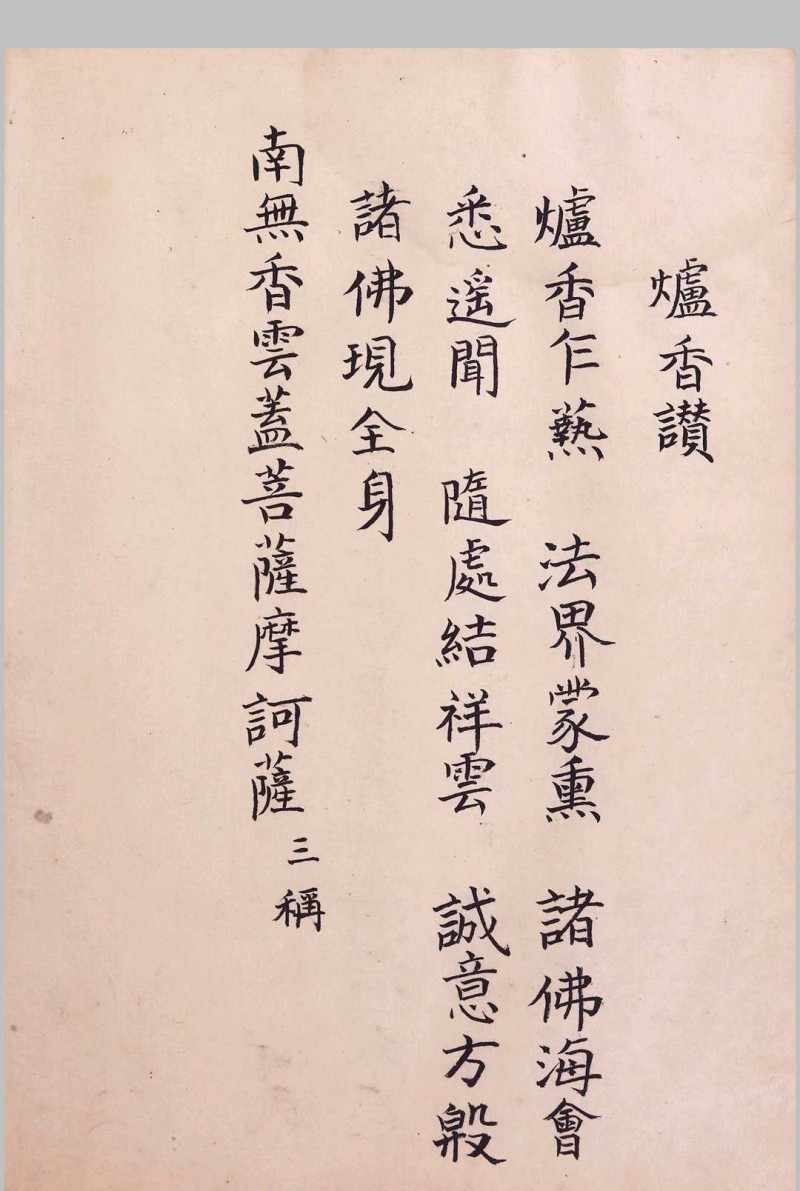 爐香讃
爐香乍爇 法界蒙熏 諸佛海會
悉遥聞 隨處結祥雲 誠意方殷
諸佛現全身
南無香雲蓋菩薩摩訶薩 三稱